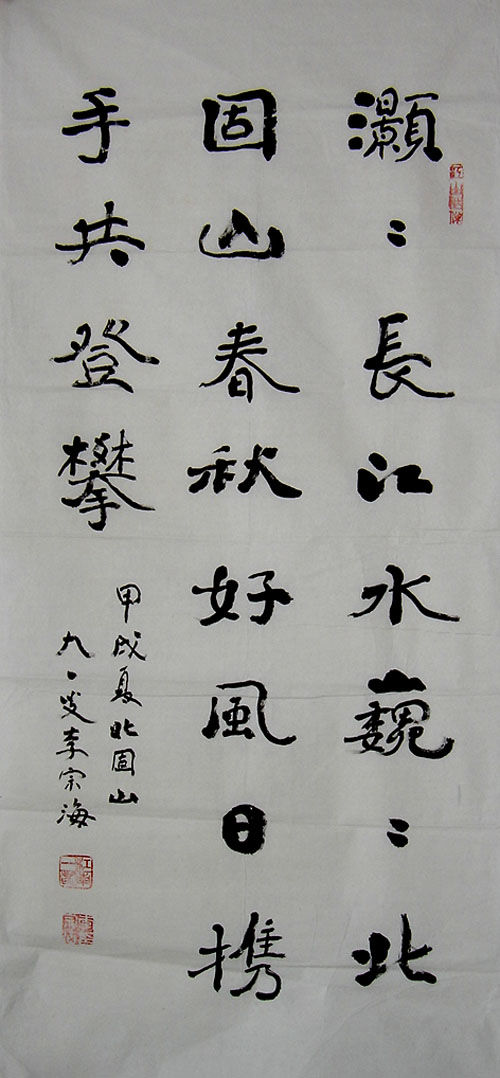 灝〻長江水巍〻北
固山春秋好風日携
手共登攀
甲戌夏北固山
九一叟李宗海